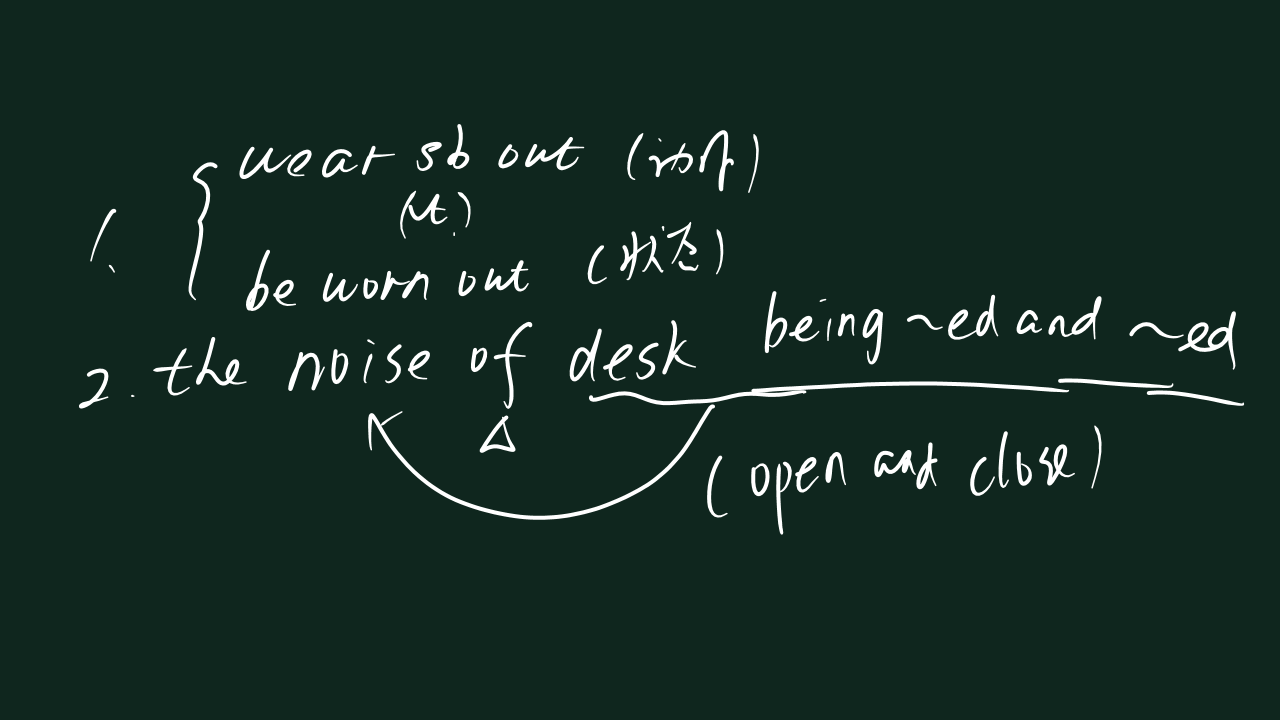 1. { wear sb out (动作)
(vt.)
be worn out (状态)
2. the noise of desk being ~ed and ~ed
(open and close)